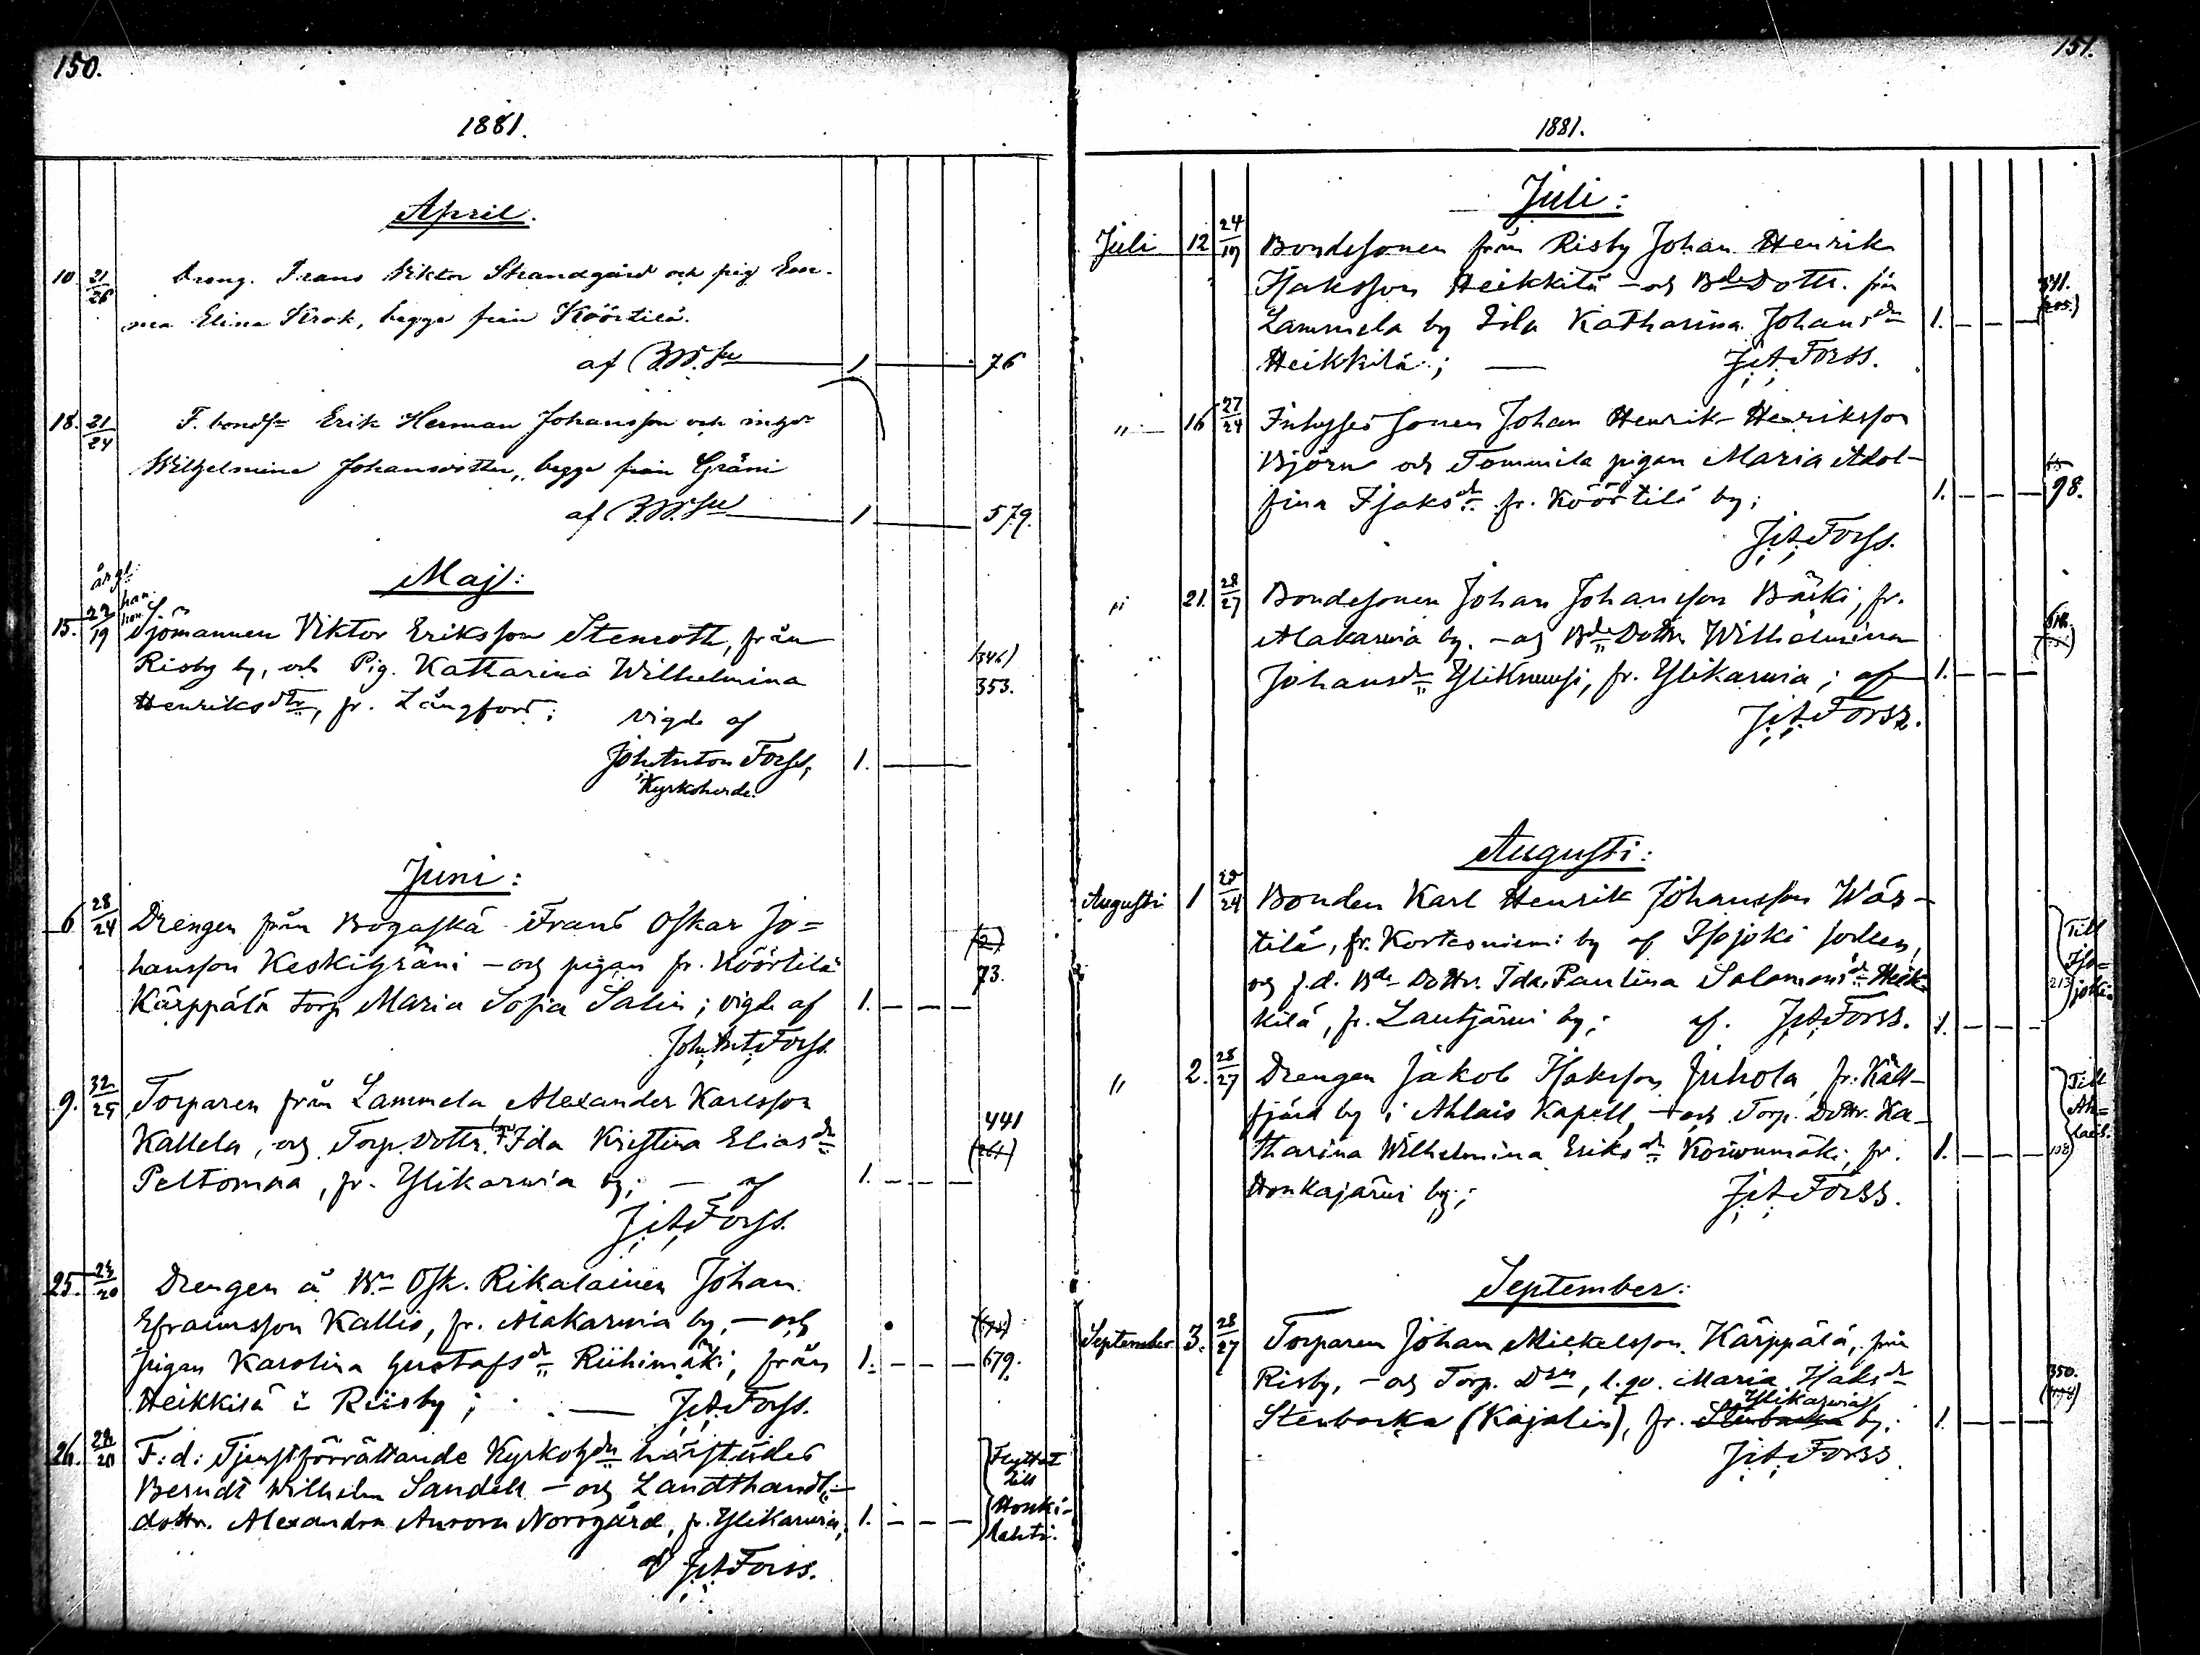 150.
1881.
April.
10 21/26 Dreng. Frans Viktor Strandgård och pig. Em-
ma Elina Krok, begge från Köörtilä.
af 1 76
18. 21/24 F. bonds. Erik Herman Johansson och
Wilhelmina Johansdotter, begge från Gräni
af 1 579.
Maj:
årgl:
15. 22/19 han. hon. Sjömannen Viktor Eriksson Stenroth, från
Risby by, och Pig. Katharina Wilhelmina
(346) 353.
Henriksdtr, fr. Långfors;
vigde af
Joh. Anton Forss, 1.
Kyrkoherde.
Juni:
6 28/24 Drengen från Bogaskä Frans Oskar Jo=
hansson Keskigräni – och pigan fr. Köörtilä
(2) 73.
Kärppälä torp Maria Sofia Salin; vigde af 1.
Joh. Ant. Forss.
9. 32/25 Torparen från Lammela Alexander Karlsson
Kallela, och Torp. Dottr. Ida Kristina Elias dr
441 (261)
Peltomaa, fr. Ylikarwia by; – af 1.
J. A. Forss.
25. 23/20 Drengen å Bn Osk. Rikalainen Johan
Efraimsson Kallio, fr. Alakarwia by, – och
pigan Karolina Gustafs dr Riihimäki, från 1. 679.
Heikkilä i Riisby; — J. A. Forss.
26. F: d: Tjenstförrättande Kyrkoh:
Berndt Wilhelm Sandell – och Landthandl.
dottr. Alexandra Aurora Norrgård, fr. Ylikarwia, 1.
Flyttat till Honki-lahti.
af J. A. Forss.
151.
1881.
Juli:
Juli 12 24/19 Bondesonen från Risby Johan Henrik
Isaksson Heikkilä – och Bde Dottr. från
341. (205.)
Lammela by Eila Katharina Johans dr 1.
Heikkilä; — J. A. Forss.
" 16 27/24 Inhyses sonen Johan Henrik Henriksson
Björn och Tommila pigan Maria Adol-
fina Isaks dr fr. Köörtilä by; 1. 98.
J. A. Forss.
" 21. 28/27 Bondesonen Johan Johansson Bäcki, fr.
Alakarwia by. – och Bde Dottr Wilhelmina
Johans dr Yliknuusi, fr. Ylikarwia; af 1.
J. A. Forss.
Augusti:
Augusti 1 Bonden Karl Henrik Johansson Wäs-
tilä, fr. Kortesniemi by af Isojoki socken,
Till Iso-joki. 213
och f. d. Bde Dottr. Ida Paulina Salomons dr Heik-
kilä, fr. Lautjärwi by; af. J. A. Forss. 1.
" 2. 28/27 Drengen Jakob Isaksson Juhola, fr. Käll-
fjärd by i Ahlais Kapell, – och Torp. Dottr. Ka-
Till Ah-lais.
tharina Wilhelmina Eriks dr Koiwumäki, fr. 1.
Honkajärwi by; J. A. Forss.
September:
September 3. 28/27 Torparen Johan Mickelsson Kärppälä, från
Risby, – och Torp. Maria Isaks dr
350.
Ylikarwia
Stenbacka (Kajalin), fr. Stenbacka by; 1.
J. A. Forss.